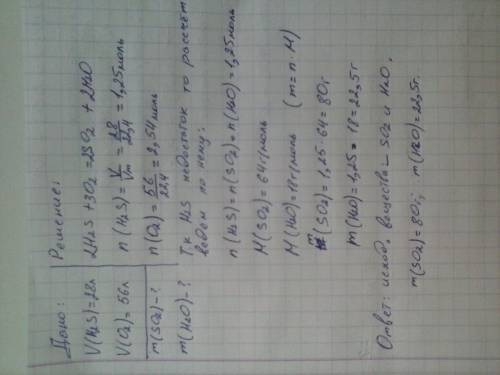 Дано:
V(H₂S)=28л
V(O₂)=56л
m(SO₂)-?
m(H₂O)-?
Решение:
2H₂S+3O₂=2SO₂+2H₂O
n(H₂S)=V/Vm=28/22,4=1,25моль
n(O₂)=56/22,4=2,54моль
Т.к H₂S недостаток то рассчёт
ведём по нему:
n(H₂S)=n(SO₂)=n(H₂O)=1,25моль
M(SO₂)=64г/моль
M(H₂O)=18г/моль (m=n·M)
m(SO₂)=1,25·64=80г
m(H₂O)=1,25·18=22,5г
Ответ: исход. вещества - SO₂ и H₂O,
m(SO₂)=80г; m(H₂O)=22,5г.